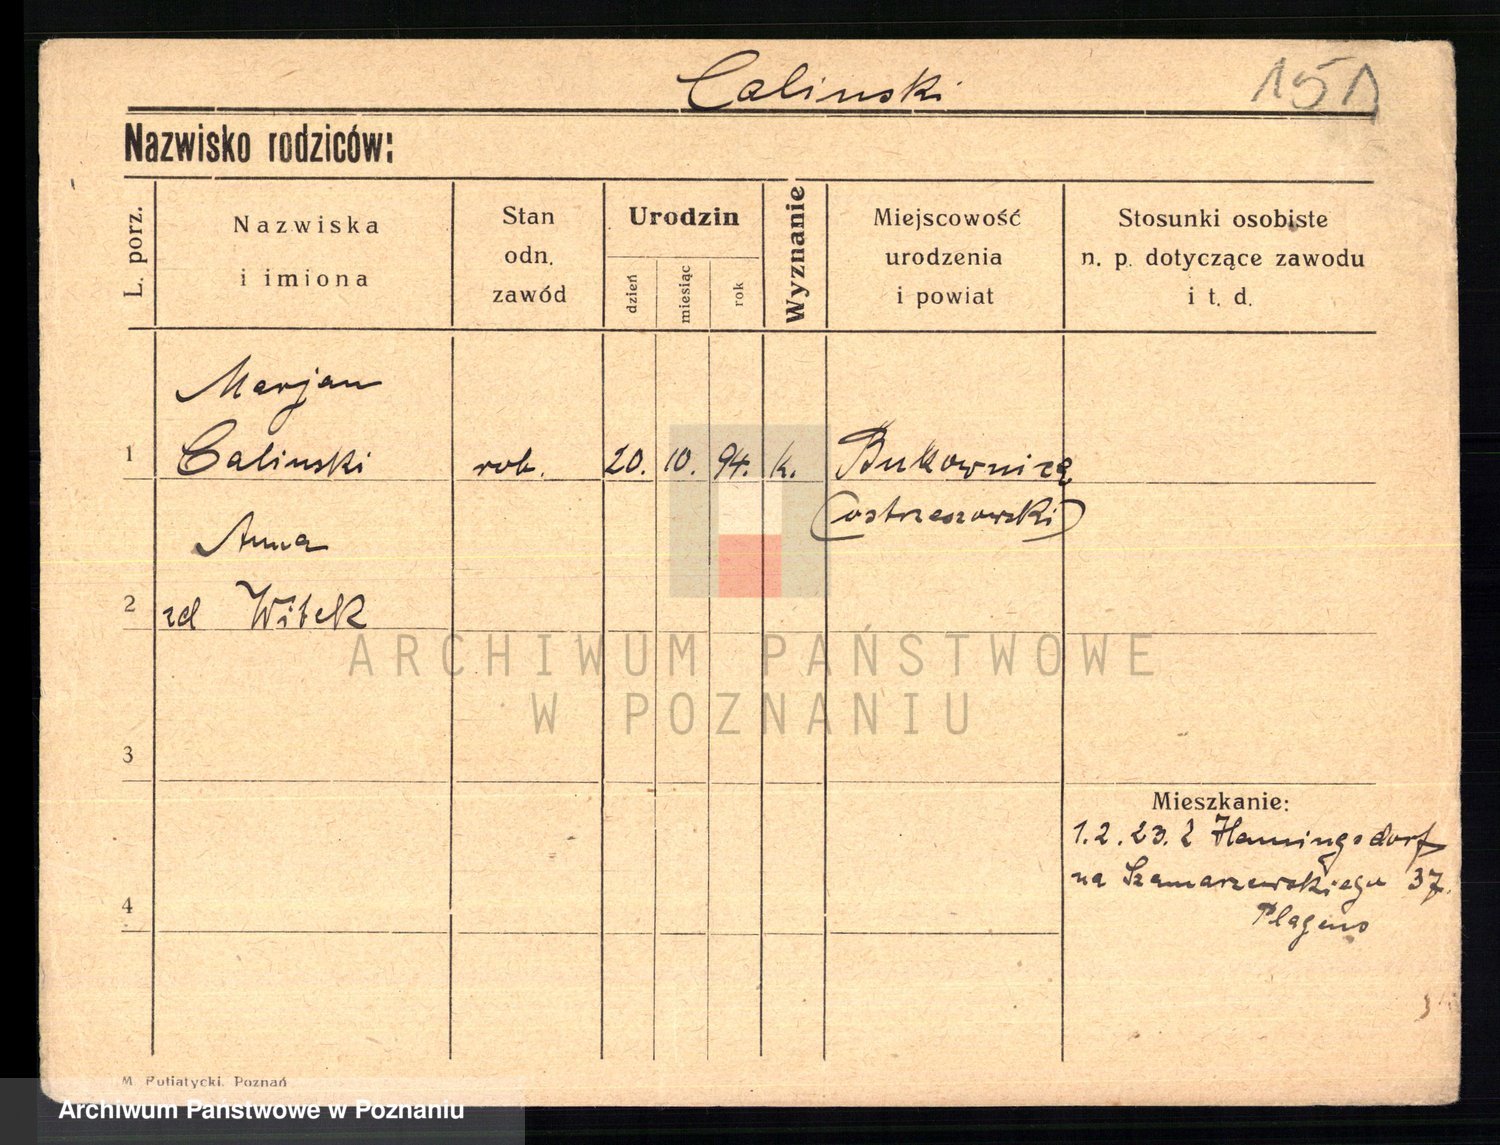 Calinski
151
Nazwisko rodziców:
L. porz.
Nazwiska
i imiona
Stan
odn.
zawód
Urodzin
dzień
miesiąc
rok
Wyznanie
Miejscowość
urodzenia
i powiat
Stosunki osobiste
n. p. dotyczące zawodu
i t. d.
Marjan
1 Calinski rob. 20. 10. 94. k. Bukownicą
(ostrzeszowski)
Anna
2 zd Witek
ARCHIWUM PAŃSTWOWE
W POZNANIU
3
Mieszkanie:
1.2.23. z Hamingsdorf
na Szamarzewskiego 37.
4
Plagens
M. Putiatycki, Poznań
Archiwum Państwowe w Poznaniu